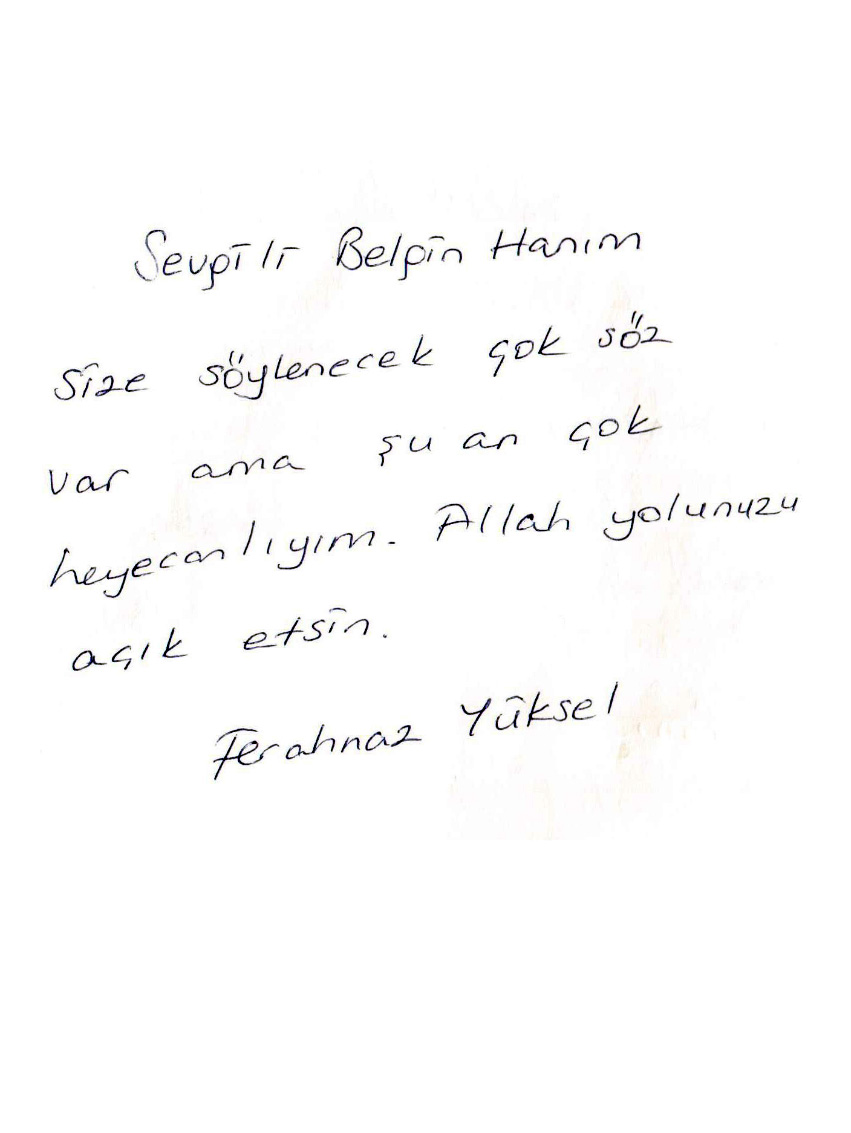 Sevgili Belgin Hanım
Size söylenecek çok söz
var ama şu an çok
heyecanlıyım. Allah yolunuzu
açık etsin.
Ferahnaz Yüksel